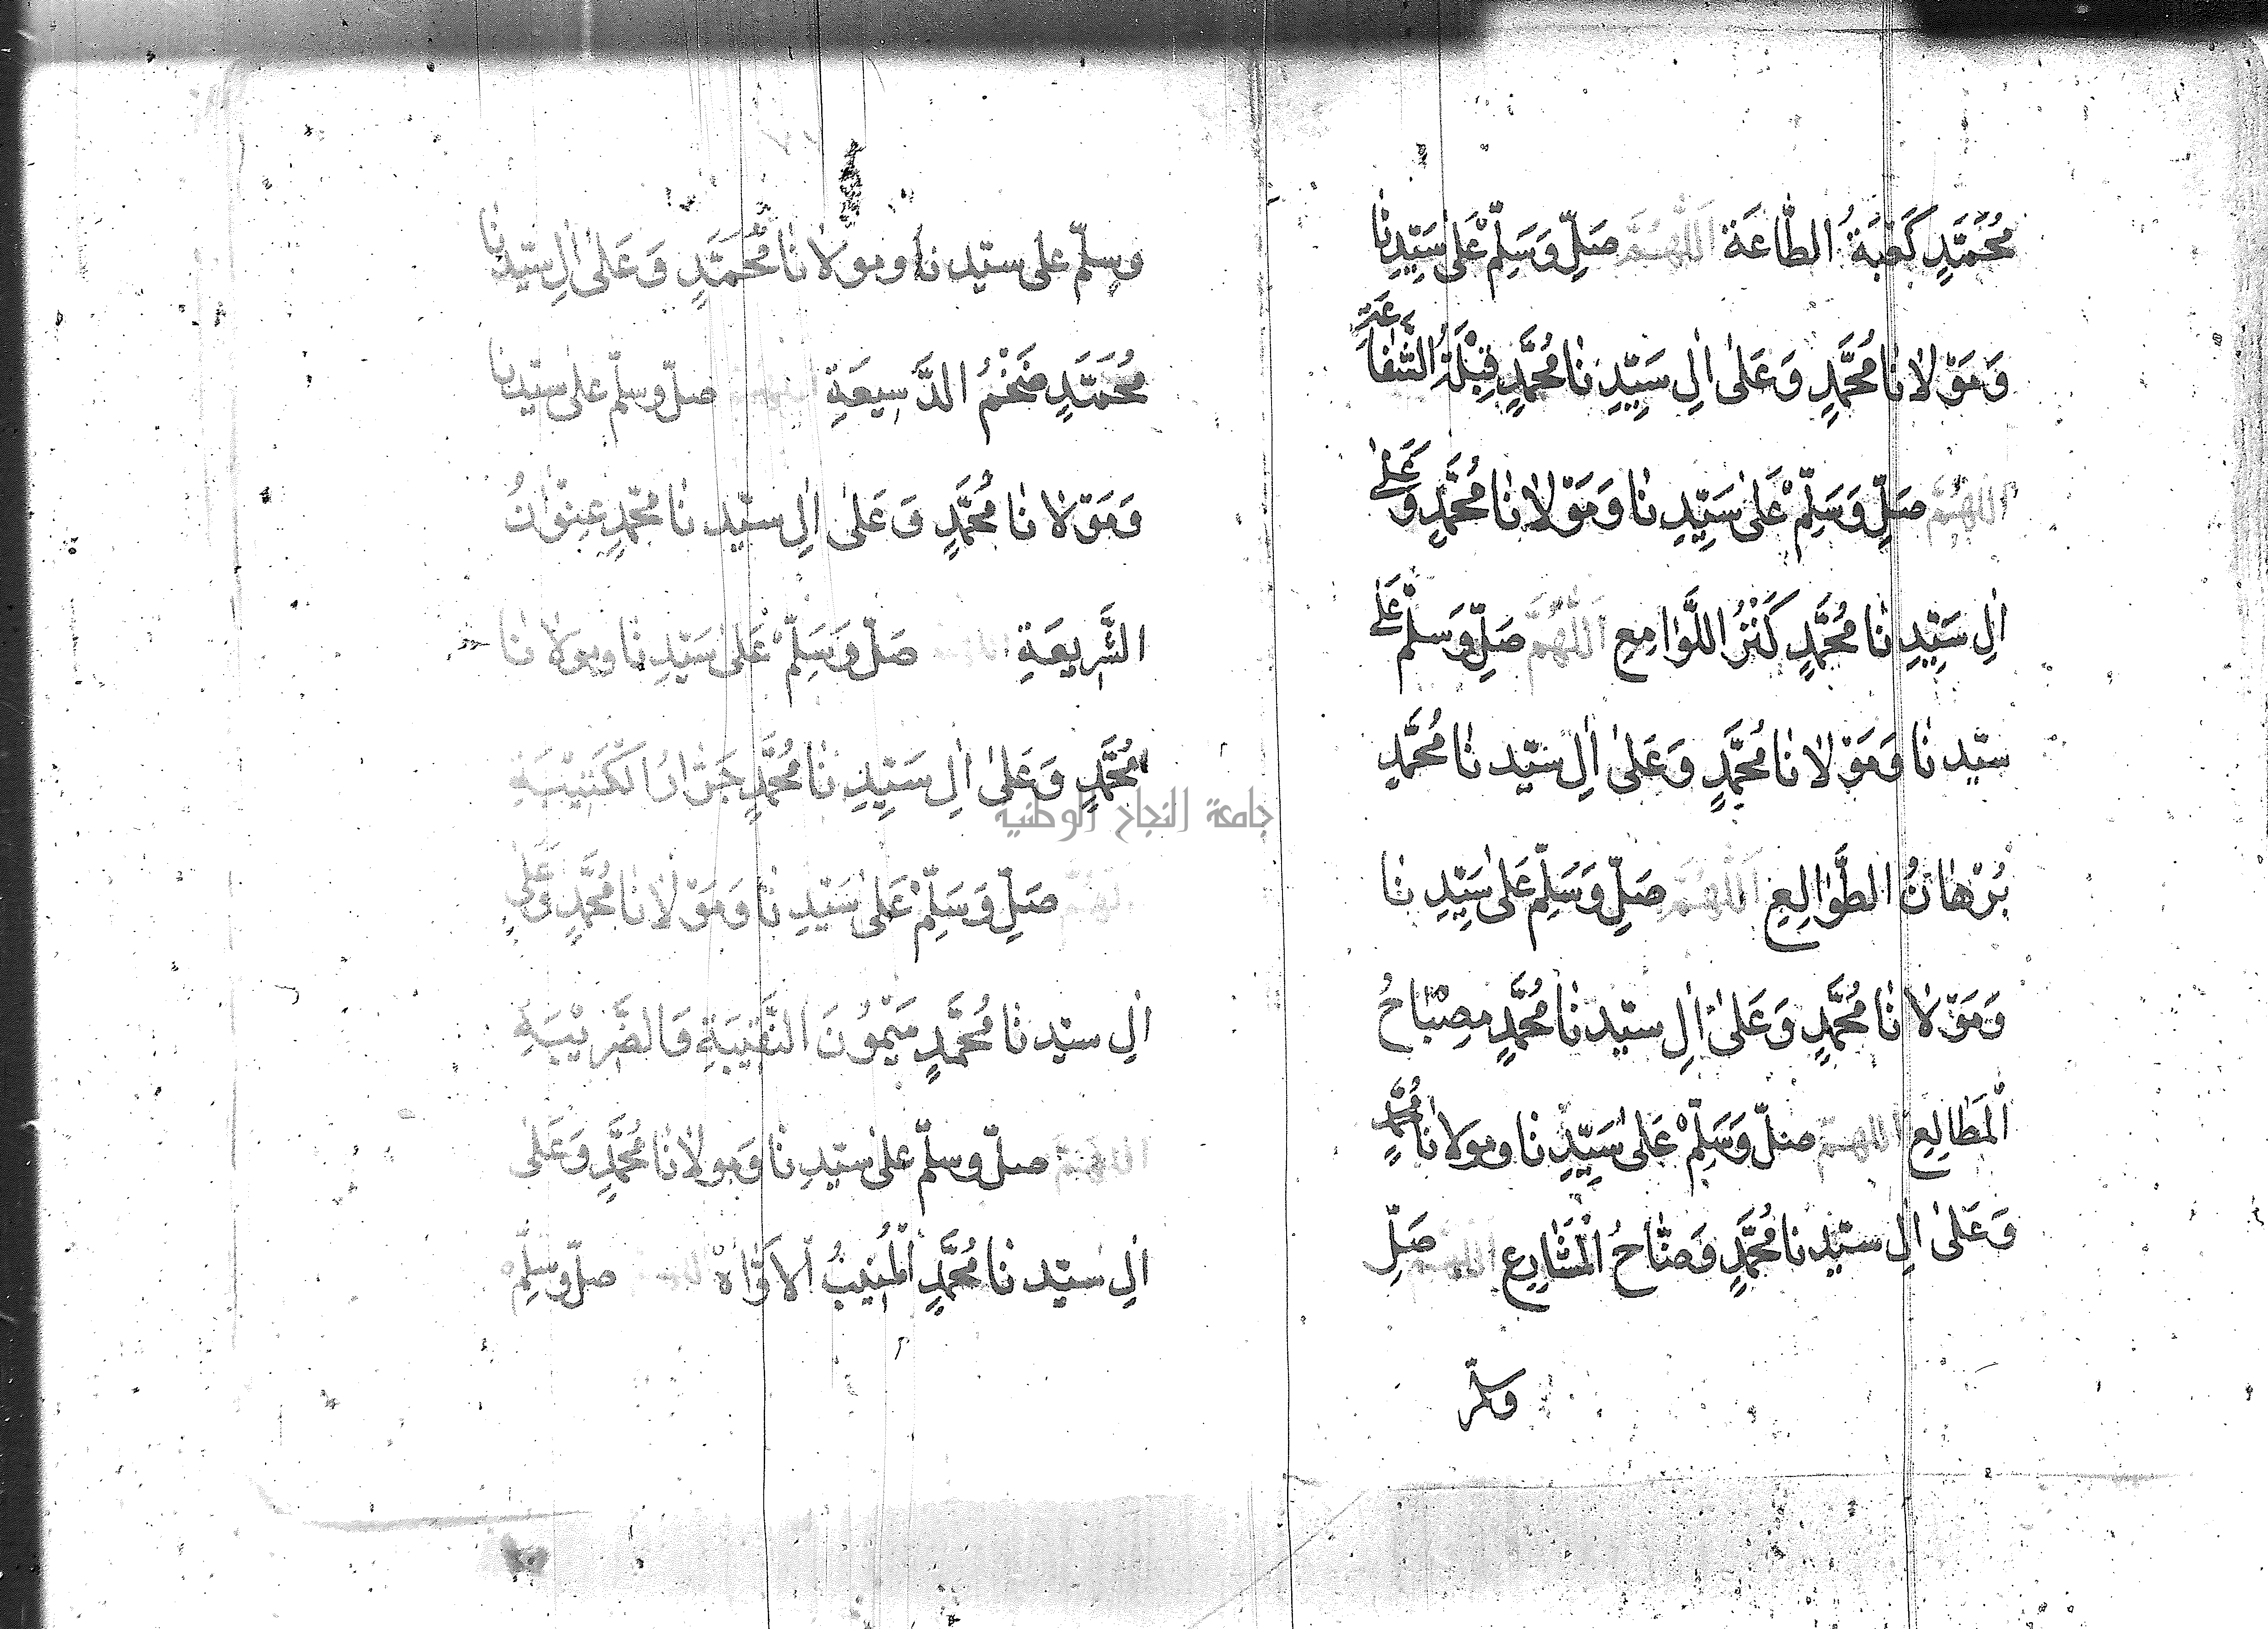 مُحَمَّدٍ كَعْبَةُ الطَّاعَة اَللّٰهُمَّ صَلِّ وَسَلِّمْ عَلىٰ سَيِّدِنَا
وَمَوْلَانَا مُحَمَّدٍ وَعَلىٰ اٰلِ سَيِّدِنَا مُحَمَّدٍ قِبْلَةُ الشَّفَاعَةِ
اَللّٰهُمَّ صَلِّ وَسَلِّمْ عَلىٰ سَيِّدِنَا وَمَوْلَانَا مُحَمَّدٍ وَعَلىٰ
اٰلِ سَيِّدِنَا مُحَمَّدٍ كَنْزُ اللَّوَامِعِ اَللّٰهُمَّ صَلِّ وَسَلِّمْ عَلىٰ
سيّدنَا وَمَوْلَانَا مُحَمَّدٍ وَعَلىٰ اٰلِ سيّدنَا مُحَمَّدٍ
بُرْهَانُ الطَّوَالِعِ اَللّٰهُمَّ صَلِّ وَسَلِّمْ عَلىٰ سَيِّدِنَا
وَمَوْلَانَا مُحَمَّدٍ وَعَلىٰ اٰلِ سيّدنَا مُحَمَّدٍ مِصْبَاحُ
الْمَطَالِعِ اللهمّ صلّ وَسَلِّمْ عَلىٰ سَيِّدِنَا ومولانَا مُحَمَّدٍ
وَعَلىٰ اٰلِ سيّدنا مُحَمَّدٍ وَضَّاحُ الْمَشَارِعِ اللهمّ صَلِّ
وسلم
وسلّم على سيّدنا ومولانَا مُحَمَّدٍ وَعَلىٰ اٰلِ سيّدِنَا
مُحَمَّدٍ ضَخْمُ الدَّسِيعَةِ اللهمّ صلّ وسلّم على سيّدنا
وَمَوْلَانَا مُحَمَّدٍ وَعَلىٰ اٰلِ سيّدنَا محمّدٍ عِنْوَانُ
الشَّرِيعَةِ اللهمّ صَلّ وَسَلِّمْ عَلىٰ سَيّدِنَا ومولانَا
مُحَمَّدٍ وَعَلىٰ اٰلِ سَيِّدِنَا مُحَمَّدٍ جَرَّارُ الْكَتِيْبَةِ
اللّٰهُمَّ صَلِّ وَسَلِّمْ عَلىٰ سَيّدِنَا وَمَوْلَانَا مُحَمَّدٍ وَعَلىٰ
اٰلِ سيّدنَا مُحَمَّدٍ مَيْمُونَ النَّقِيبَةِ وَالضَّرِيْبَةِ
اللّهُمَّ صلّ وسلّم على سيّدِنَا وَمولَانَا مُحَمَّدٍ وَعَلىٰ
اٰلِ سيّدنَا مُحَمَّدٍ الْمُنِيبُ الاَوَّاهُ اللهمّ صلّ وسَلِّمْ
جامعة النجاح الوطنية